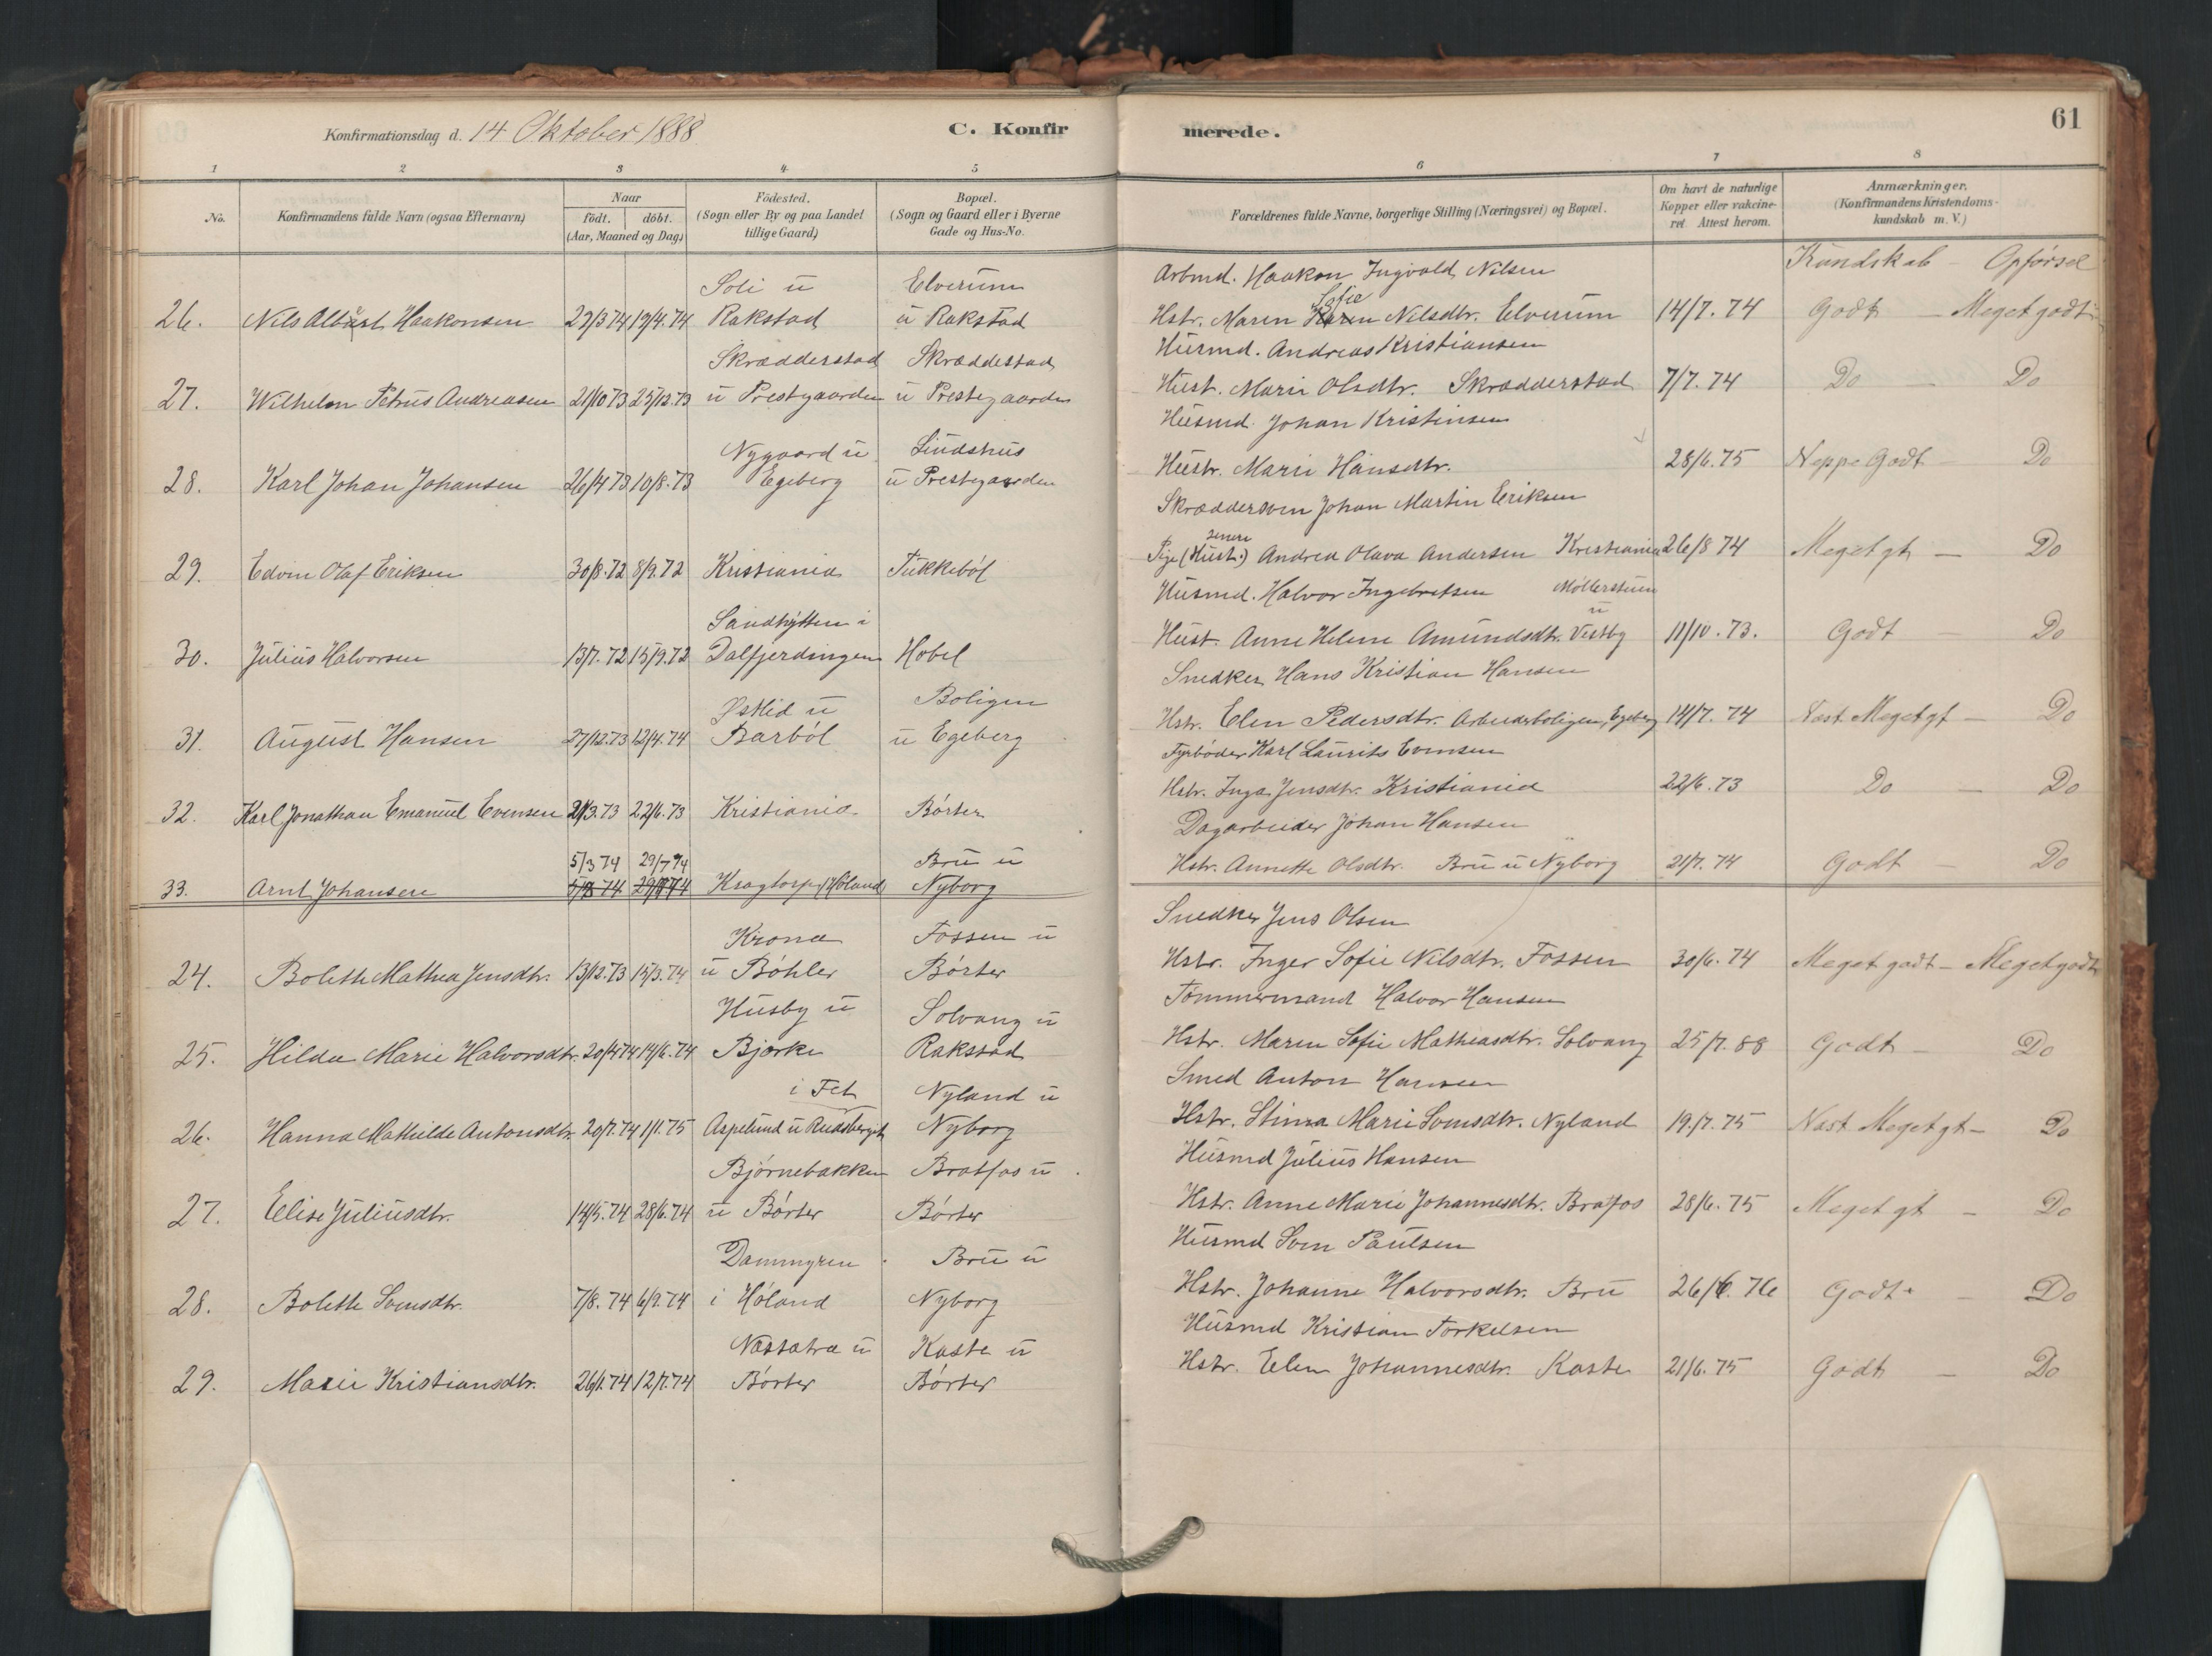 Konfirmationsdag d. 14 Oktober 1888
C. Konfir
merede.
61
1 2 3 4 5 6 7 8
No.
Konfirmandens fulde Navn (ogsaa Efternavn)
Naar
födt. döbt.
(Aar, Maaned og Dag)
Födested.
(Sogn eller By og paa Landet
tillige Gaard)
Bopæl.
(Sogn og Gaard eller i Byerne
Gade og Hus-No.
Forældrenes fulde Navne, borgerlige Stilling (Næringsvei) og Bopæl.
Om havt de naturlige
Kopper eller vakcine-
ret Attest herom.
Anmærkninger.
(Konfirmandens Kristendoms-
kundskab m. V.)
Kundskab - Opførsel
Soli u Elverum Arbmd. Haakon Ingvald Nilsen
26. Nils Albert Haakonsen 29/3 74 19/4.74 Rakstad u Rakstad Hstr. Maren Sofie Nilsdtr. Elverum 14/7.74 Godt - Meget godt
Skrædderstad Skræddestad Husmd. Andreas Kristiansen
27. Wilhelm Petrus Andreasen 21/10 73 25/12.73 u Prestgaarden u Prestegaarden Hust. Marie Olsdtr. Skrædderstad 7/7.74 Do - Do
Nygaard u Lindshus Husmd. Johan Kristinsen
28. Karl Johan Johansen 26/4 73 10/8.73 Egeberg u Prestegaarden Hustr. Marie Hansdtr. 28/6.75 Neppe Godt - Do
Skræddersven Johan Martin Eriksen
29. Edvin Olaf Eriksen 30/8.72 8/9.72 Kristiania Tukkebøl Pige (senere Hust.) Andrea Olava Andersen Kristiania 26/8 74 Meget gt - Do
Sandhytten i Husmd. Halvor Ingebretsen Møllerstuen u
30. Julius Halvorsen 13/7.72 15/9.72 Dalfjerdingen Hobel Hust. Anne Helene Amundsdtr. Vestby 11/10.73. Godt - Do
Østlid u Boligen Snedker Hans Kristian Hansen
31. August Hansen 27/12.73 12/4.74 Barbøl u Egeberg Hstr. Elen Pedersdtr. Arbeiderboligen, Egeberg 14/7.74 Næst Meget gt - Do
Fyrbøder Karl Laurits Evensen
32. Karl Jonathan Emanuel Evensen 21/3.73 22/6.73 Kristiania Børter Hstr. Inga Jensdtr. Kristiania 22/6.73 Do - Do
5/3 74 29/7 74 Bru u Dagarbeider Johan Hansen
33. Arnt Johansen Kragtorp (Høland) Nyborg Hstr. Annette Olsdtr. Bru u Nyborg 21/7.74 Godt - Do
Krona Fossen u Snedker Jens Olsen
24. Bolette Mathea Jensdtr. 13/12.73 15/3.74 u Bøhler Børter Hstr. Inger Sofie Nilsdtr. Fossen 30/6.74 Meget godt - Meget godt
Husby u Solvang u Tømmermand Halvor Hansen
25. Hilda Marie Halvorsdtr. 20/4 74 14/6.74 Bjørke Rakstad Hstr. Maren Sofie Mathiasdtr. Solvang 25/7.88 Godt - Do
i Fet Nyland u Smed Anton Hansen
26. Hanna Mathilde Antonsdtr. 20/7.74 1/1.75 Aspelund u Rudsberget Nyborg Hstr. Stina Marie Svensdtr. Nyland 19/7.75 Næst Meget gt - Do
Bjørnebakken Bratfos u Husmd Julius Hansen
27. Elise Juliusdtr. 14/5.74 28/6.74 u Børter Børter Hstr. Anne Marie Johannesdtr. Bratfos 28/6.75 Meget gt - Do
Dammyren Bru u Husmd Sven Paulsen
28. Bolette Svensdtr. 7/8.74 6/9.74 i Høland Nyborg Hstr. Johanne Halvorsdtr. Bru 26/6.76 Godt - Do
Næssetra u Kaste u Husmd Kristian Torkelsen
29. Marie Kristiansdtr. 26/1.74 12/7.74 Børter Børter Hstr. Elen Johannesdtr. Kaste 21/6.75 Godt - Do